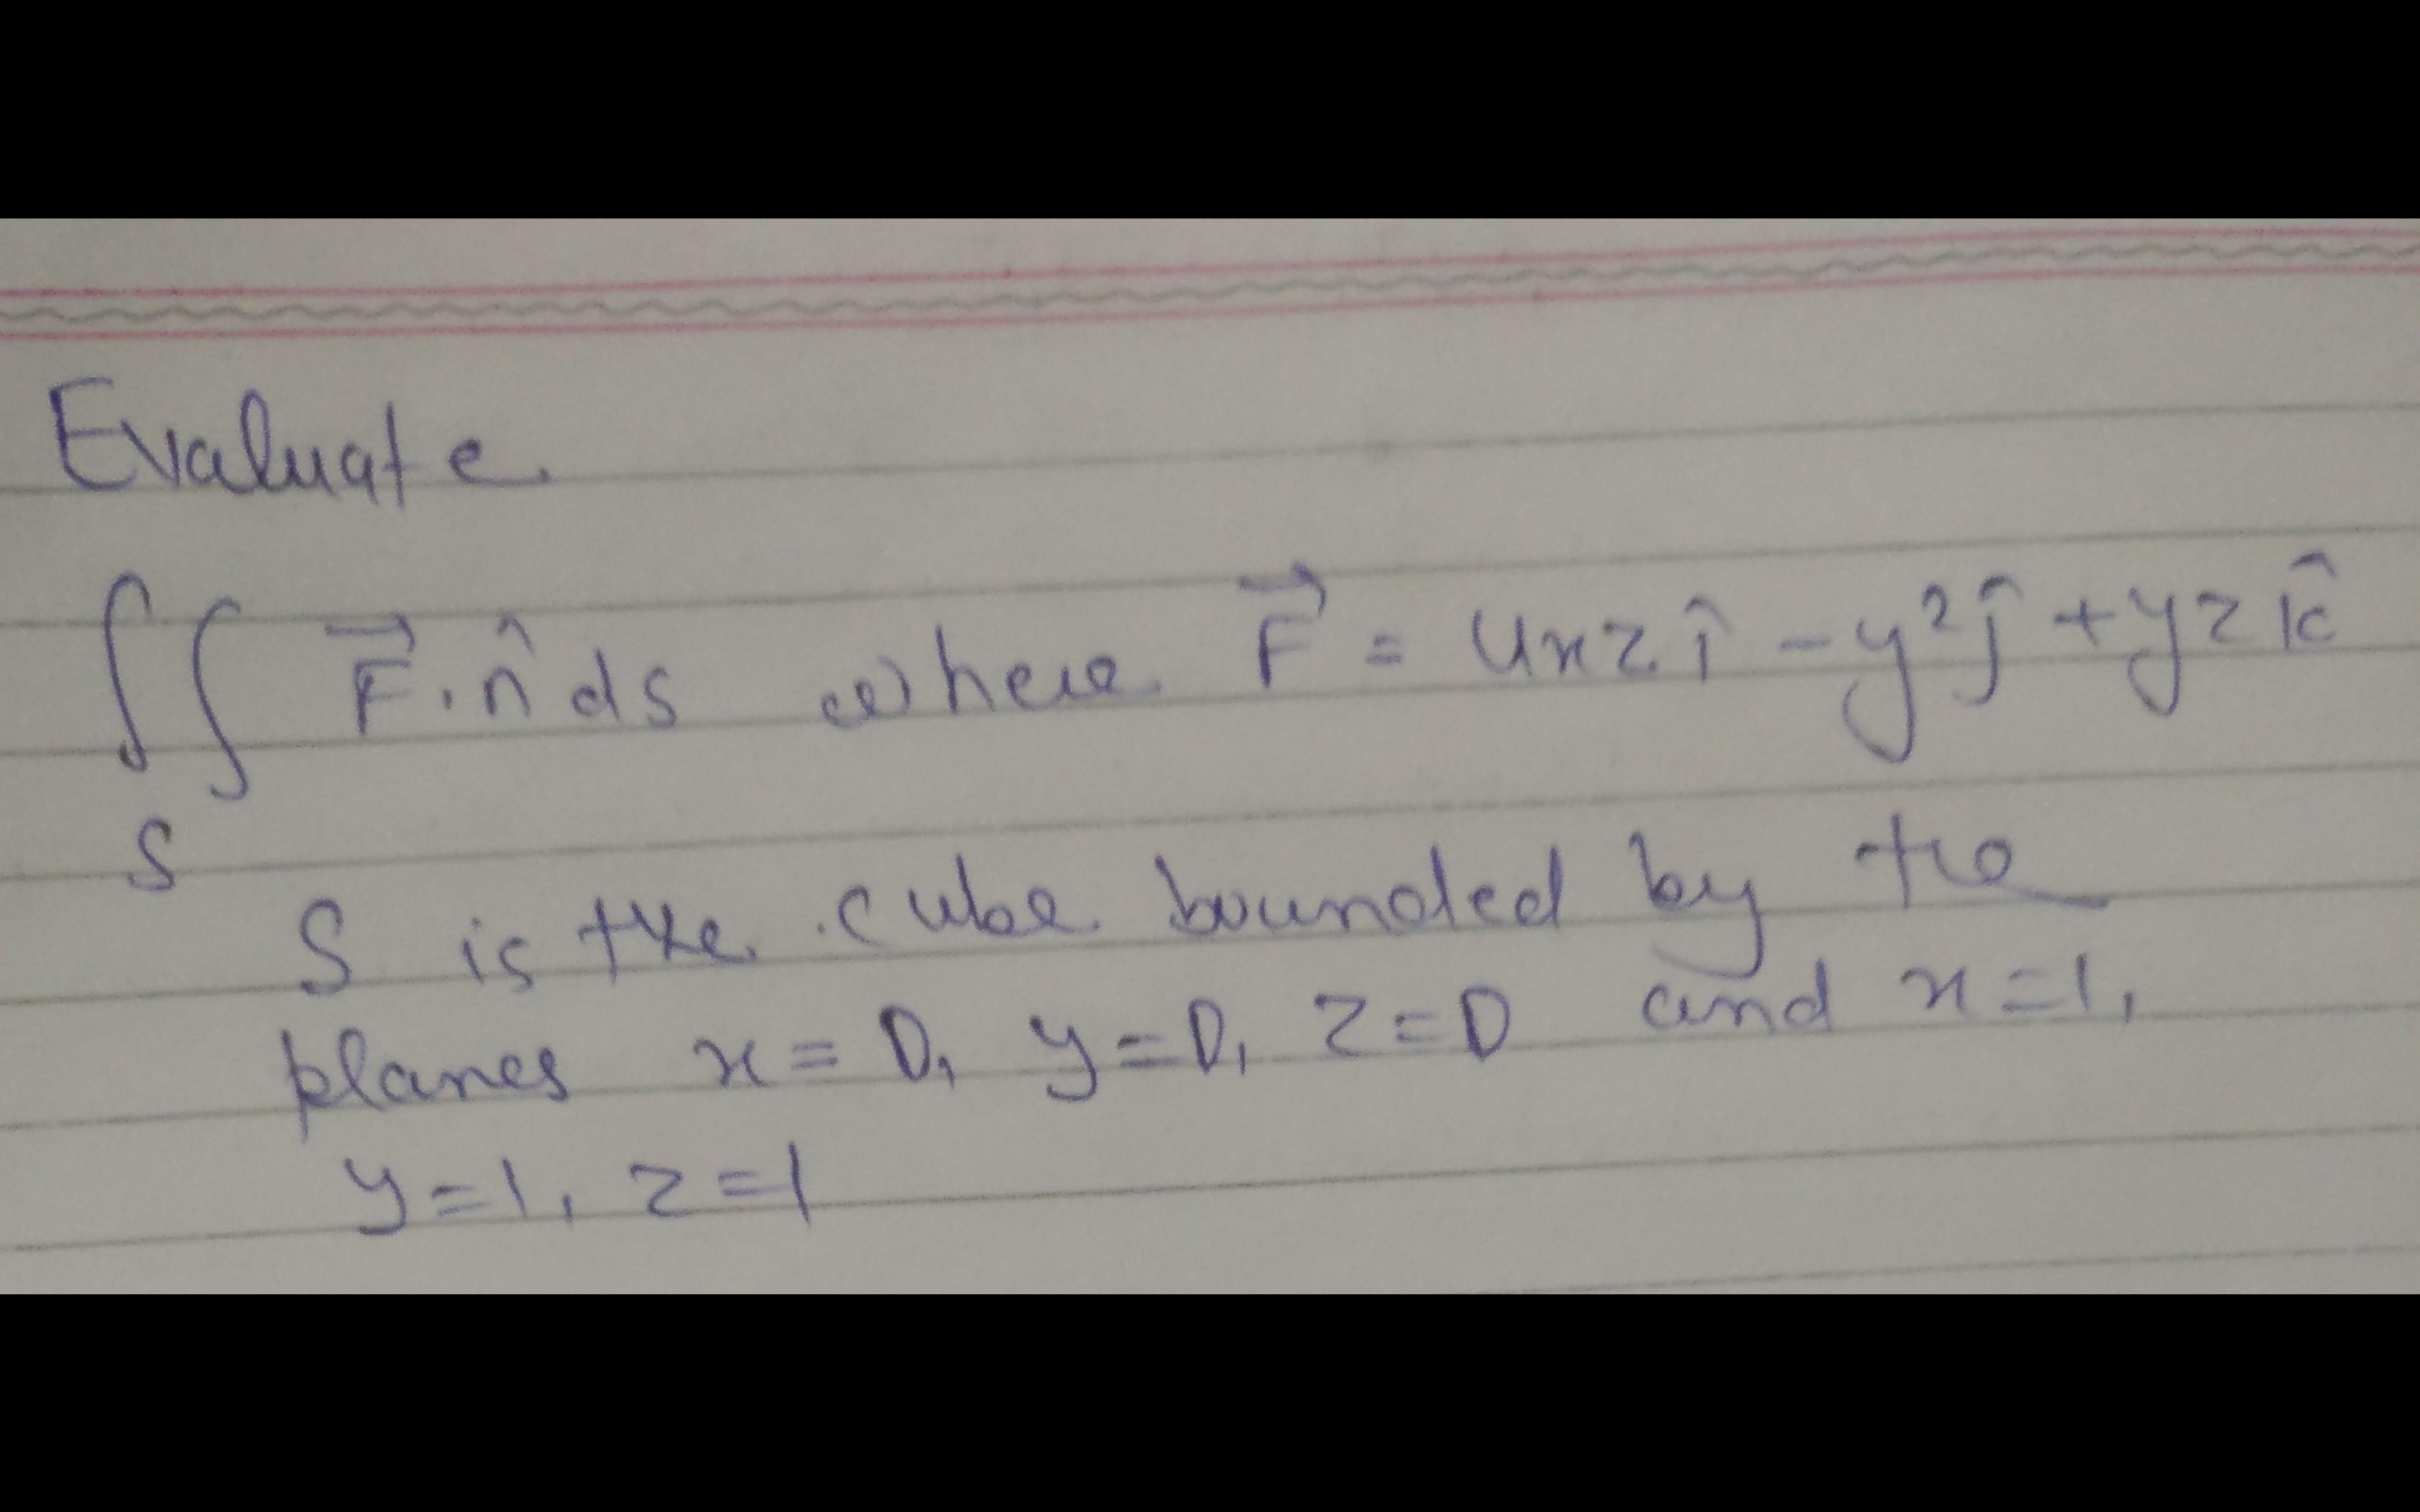 Evaluate
∬ F⃗.n̂ ds where F⃗ = 4xz î - y²ĵ + yz k̂
S
S is the cube bounded by the
planes x = 0, y = 0, z = 0 and x = 1,
y = 1, z = 1